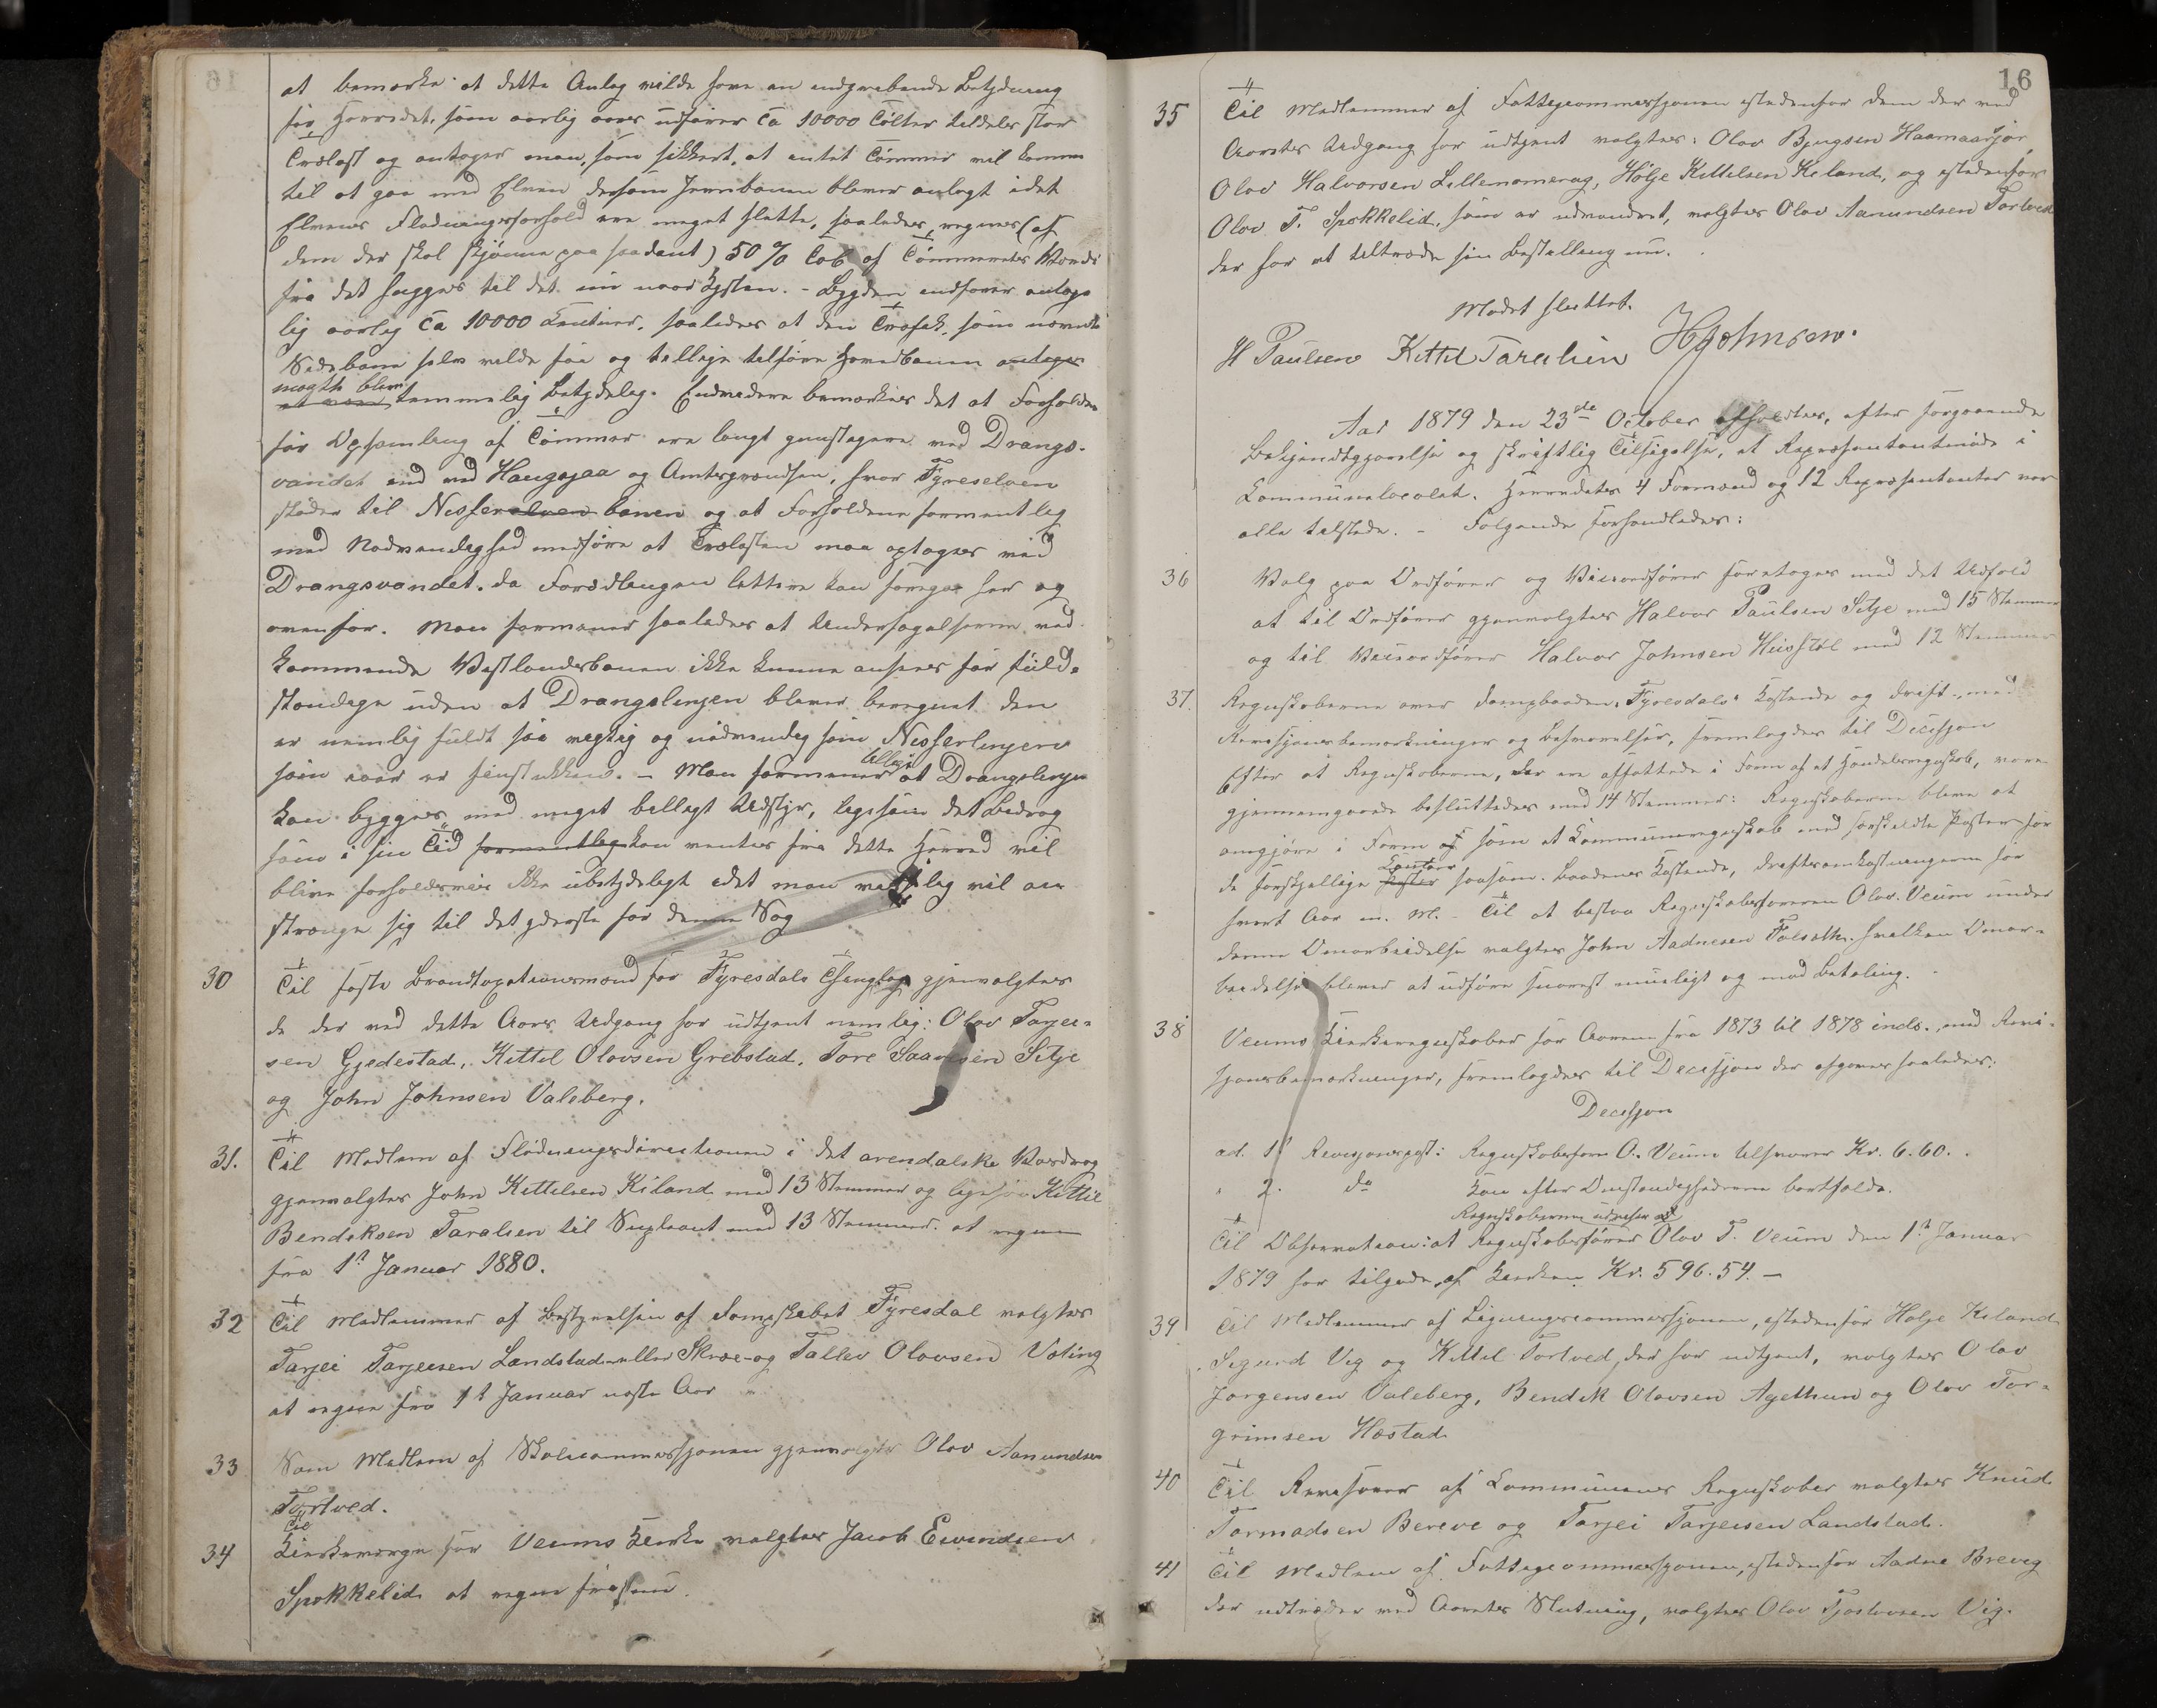 at bemærke at dette Anlæg vilde have en indgribende Betydning
for Herredet, som aarlig aars udfører ca 10000 Tølter tildels stor
Trælast og antages man, som sikkert, at intet Tømmer vil komme
til at gaa med Elven dersom Jernbanen bliver anlagt idet
Elvens Flødningsforhold ere meget slette, saaledes regnes (af
dem der skal skjønne paa saadant) 50 % Tab af Tømmerets Værdi
fra det hugges til det er ved Kysten. - Bygden indfører antage
lig aarlig ca 10000 Centner, saaledes at den Trafik, som nævnte
Sidebane selv vilde faa og tillige tilføre Hovedbanen antages
maatte blive
at være temmelig Betydelig. Endvidere bemærkes det at Forholdene
for Opsamling af Tømmer ere langt gunstigere ved Drangs-
vandet end ved Haugsjaa og Amtsgrændsen, hvor Fyreselven
støder til Nisserelven banen og at Forholdene formentlig
med Nødvendighed medføre at Trælasten maa optages ved
Drangsvandet, da Forædlingen lettere kan foregaa her og
ovenfor. Man formener saaledes at Undersøgelserne ved
kommende Vestlandsbanen ikke kunne ansees for fuld-
stændige uden at Drangslinjen bliver beregnet den
er nemlig fuldt saa vigtig og nødvendig som Nisserlinjen
som er . - Man formener tillige at Drangslinjen
kan bygges med meget billigt Udstyr, ligesom det Bidrag
som i sin Tid formentlig kan ventes fra dette Herred vil
blive forholdsviis ikke ubetydeligt idet man vistnok vil an
strænge sig til det yderste for denne Sag
30 Til faste Brandtaxationsmænd for Fyresdals Thinglag gjenvalgtes
de der ved dette Aars Udgang har udtjent nemlig: Olav Tarjei-
sen Gjedestad, Kittil Olavsen Grebstad, Tore Saavesen Sitje
og John Johnsen Valeberg.
31. Til Medlem af Flødningsdirectionen i det arendalske Vasdrag
gjenvalgtes John Kittilsen Kiland med 13 Stemmer og ligesaa Kittil
Bendiksen Taralsen til Supleant med 13 Stemmer at regne
fra 1st Januar 1880.
32 Til Medlemmer af Bestyrelsen af Dampskibet Fyresdal valgtes
Tarjei Tarjeisen Landstad eller Skræ og Tallev Olavsen Væting
at regne fra 1st Januar næste Aar
33 Som Medlem af Skolecommissjonen gjenvalgtes Olav Aanundsen
Tortved.
Til
34 Kirkeværge for Veums Kirke valgtes Jacob Eivindsen
Spokkelid at regne fra nu.
16
35 Til Medlemmer af Fattigcommissjonen istedenfor dem der ved
Aarets Udgang har udtjent valgtes: Olav Bjugsen Haamaarsjor,
Olav Halvorsen Lillenomerag, Hølje Kittilsen Kiland, og istedenfor
Olav T. Spokkelid, som er udvandret, valgtes Olav Aanundsen Tortved
der har at tiltræde sin Bestilling nu.
Mødet sluttet.
H Paulsen Kittil Taralsen HJohnsen.
Aar 1879 den 23de October afholdtes, efter foregaaende
Bekjendtgjørelse og skriftlig Tilsigelse, et Repræsentantmøde i
Communelocalet. Herredets 4 Formænd og 12 Repræsentanter var
alle tilstede. - Følgende forhandledes:
36 Valg paa Ordfører og Viceordfører foretoges med det Udfald
at til Ordfører gjenvalgtes Halvor Paulsen Sitje med 15 Stemmer
og til Viceordfører Halvor Johnsen Huusstøl med 12 Stemmer
37. Regnskaberne over Dampbaaden "Fyresdals" Kostende og Drift, med
Revisjonsbemærkninger og Besvarelser, fremlagdes til Decisjon
Efter at Regnskaberne, der ere affattede i Form af et Handelsregnskab, vare
gjennemgaaede besluttedes med 14 Stemmer: Regnskaberne blive at
omgjøre i Form af som et Communeregnskab med særskildte Poster for
Contoer
de forskjellige Poster saasom. Baadens Kostende, Driftsomkostningerne for
hvert Aar m. M. - Til at bistaa Regnskabsføreren Olav Veum under
denne Omarbeidelse valgtes John Aadnesen Folsæth, hvilken Omar-
beidelse bliver at udføre snarest mueligt og mod Betaling. -
38 Veums Kirkeregnskaber for Aarene fra 1873 til 1878 incls., med Revi-
sjonsbemærkninger, fremlagdes til Decisjon der afgaves saaledes:
Decisjon
ad. 1 Revisjonspost: Regnskabsføren O. Veum tilsvarer Kr. 6.60.
" 2. do Kan efter Omstændighederne bortfalde.
Regnskaberne udviser at
Til Observation: at Regnskabsfører Olav T. Veum den 1st Januar
1879 har tilgode af Kirken Kr. 596.54. -
39 Til Medlemmer af Ligningscommissjonen, istedenfor Hølje Kiland
Sigurd Vig og Kittil Tortved, der har udtjent, valgtes Olav
Jørgensen Valeberg, Bendik Olavsen Ayethun og Olav Tor-
grimsen Hæstad
40 Til Revisorer af Communens Regnskaber valgtes Knud
Tarmodsen Bereve og Tarjei Tarjeisen Landstad.
41 Til Medlem af Fattigcommissjonen, istedenfor Aadne Breveg
der udtræder ved Aarets Slutning, valgtes Olav Tjostovsen Vig.